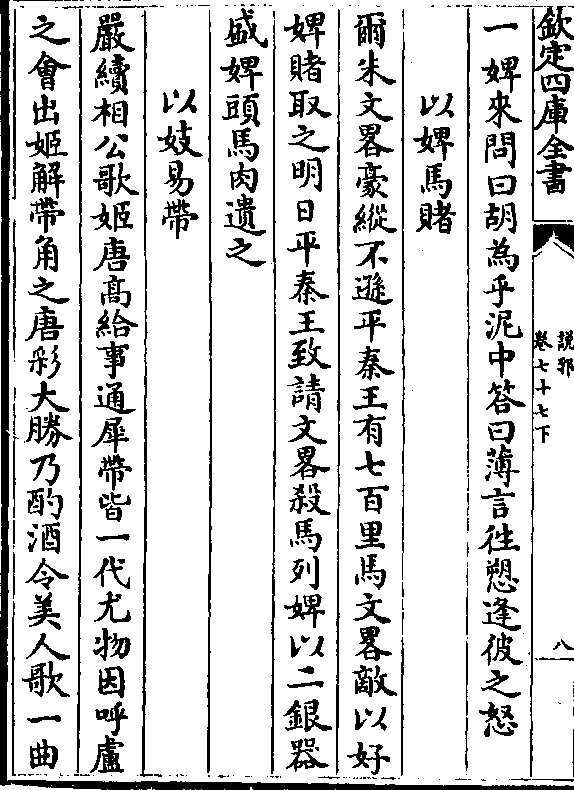 欽定四庫全書
說郛
卷七十七下
八
一婢來問曰胡為乎泥中答曰薄言往愬逢彼之怒
以婢馬賭
爾朱文畧豪縱不遜平秦王有七百里馬文畧敵以好
婢賭取之明日平秦王致請文畧殺馬列婢以二銀器
盛婢頭馬肉遺之
以妓易帶
嚴續相公歌姬唐髙給事通犀帶皆一代尤物因呼盧
之會出姬解帶角之唐彩大勝乃酌酒令美人歌一曲